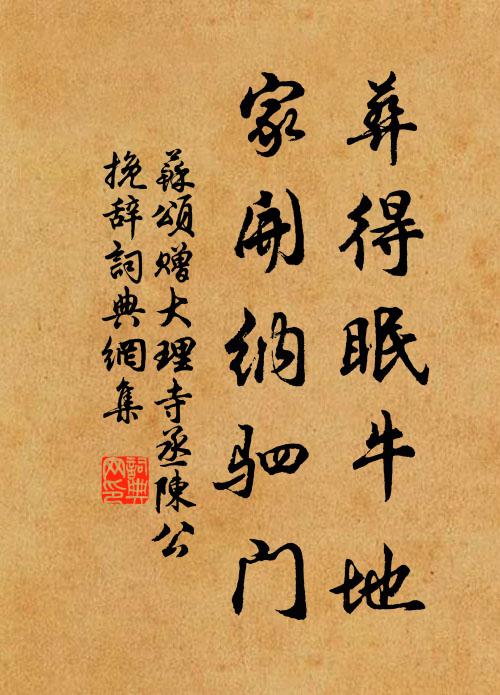 葬得眠牛地
家開納駟门
蘇頌贈大理寺丞陳公
挽辞詞典網集
詞典网印